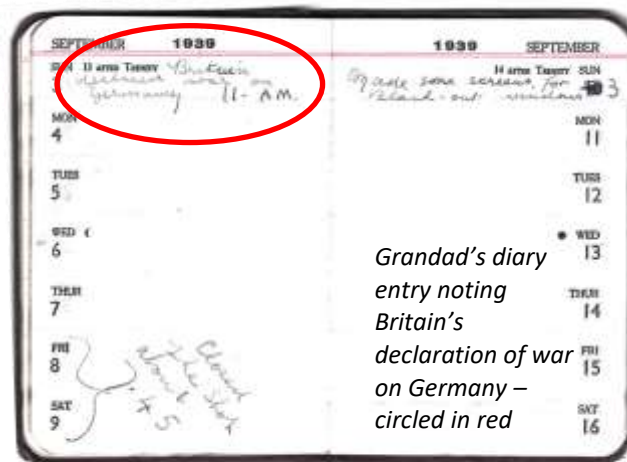 SEPTEMBER 1939
SUN 13 after Trinity Britain
3 declared war on
Germany 11- A.M.
MON
4
TUES
5
WED
6
THUR
7
FRI
8
SAT
9
Closed
the shop
about
7.45
1939 SEPTEMBER
14 after Trinity SUN
made some screens for 10 3
Black-out windows
MON
11
TUES
12
WED
13
THUR
14
FRI
15
SAT
16
Grandad's diary
entry noting
Britain's
declaration of war
on Germany –
circled in red